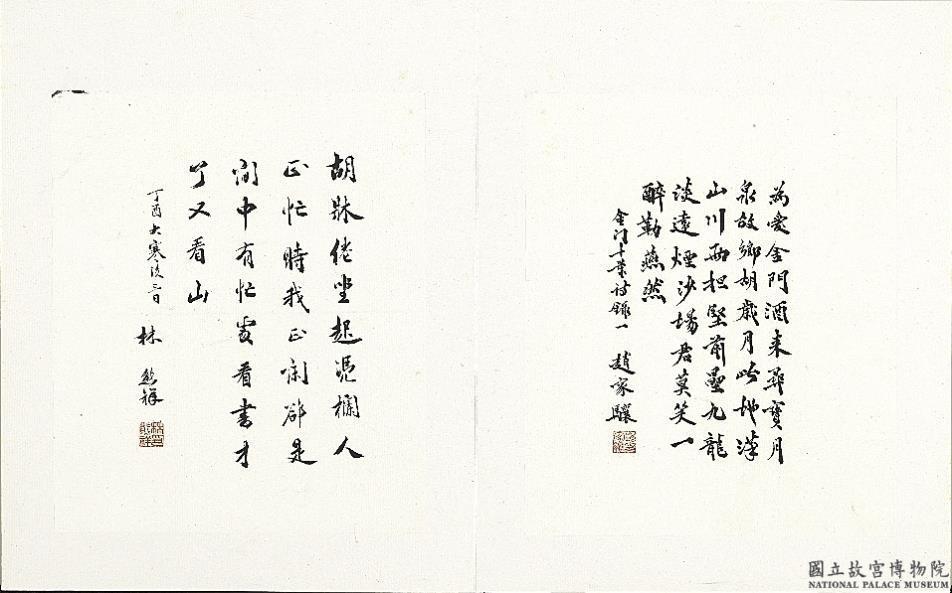 為愛金門酒來尋寶月
泉故鄉胡歲月此地漢
山川兩担堅前壘九龍
淡遠煙沙場君莫笑一
醉勒燕然
金門十葉詩錄一 趙家驤
胡牀倦坐起憑欄人
正忙時我正閑卻是
閑中有忙處看書才
了又看山
丁酉大寒後日 林熊祥
國立故宮博物院
NATIONAL PALACE MUSEUM